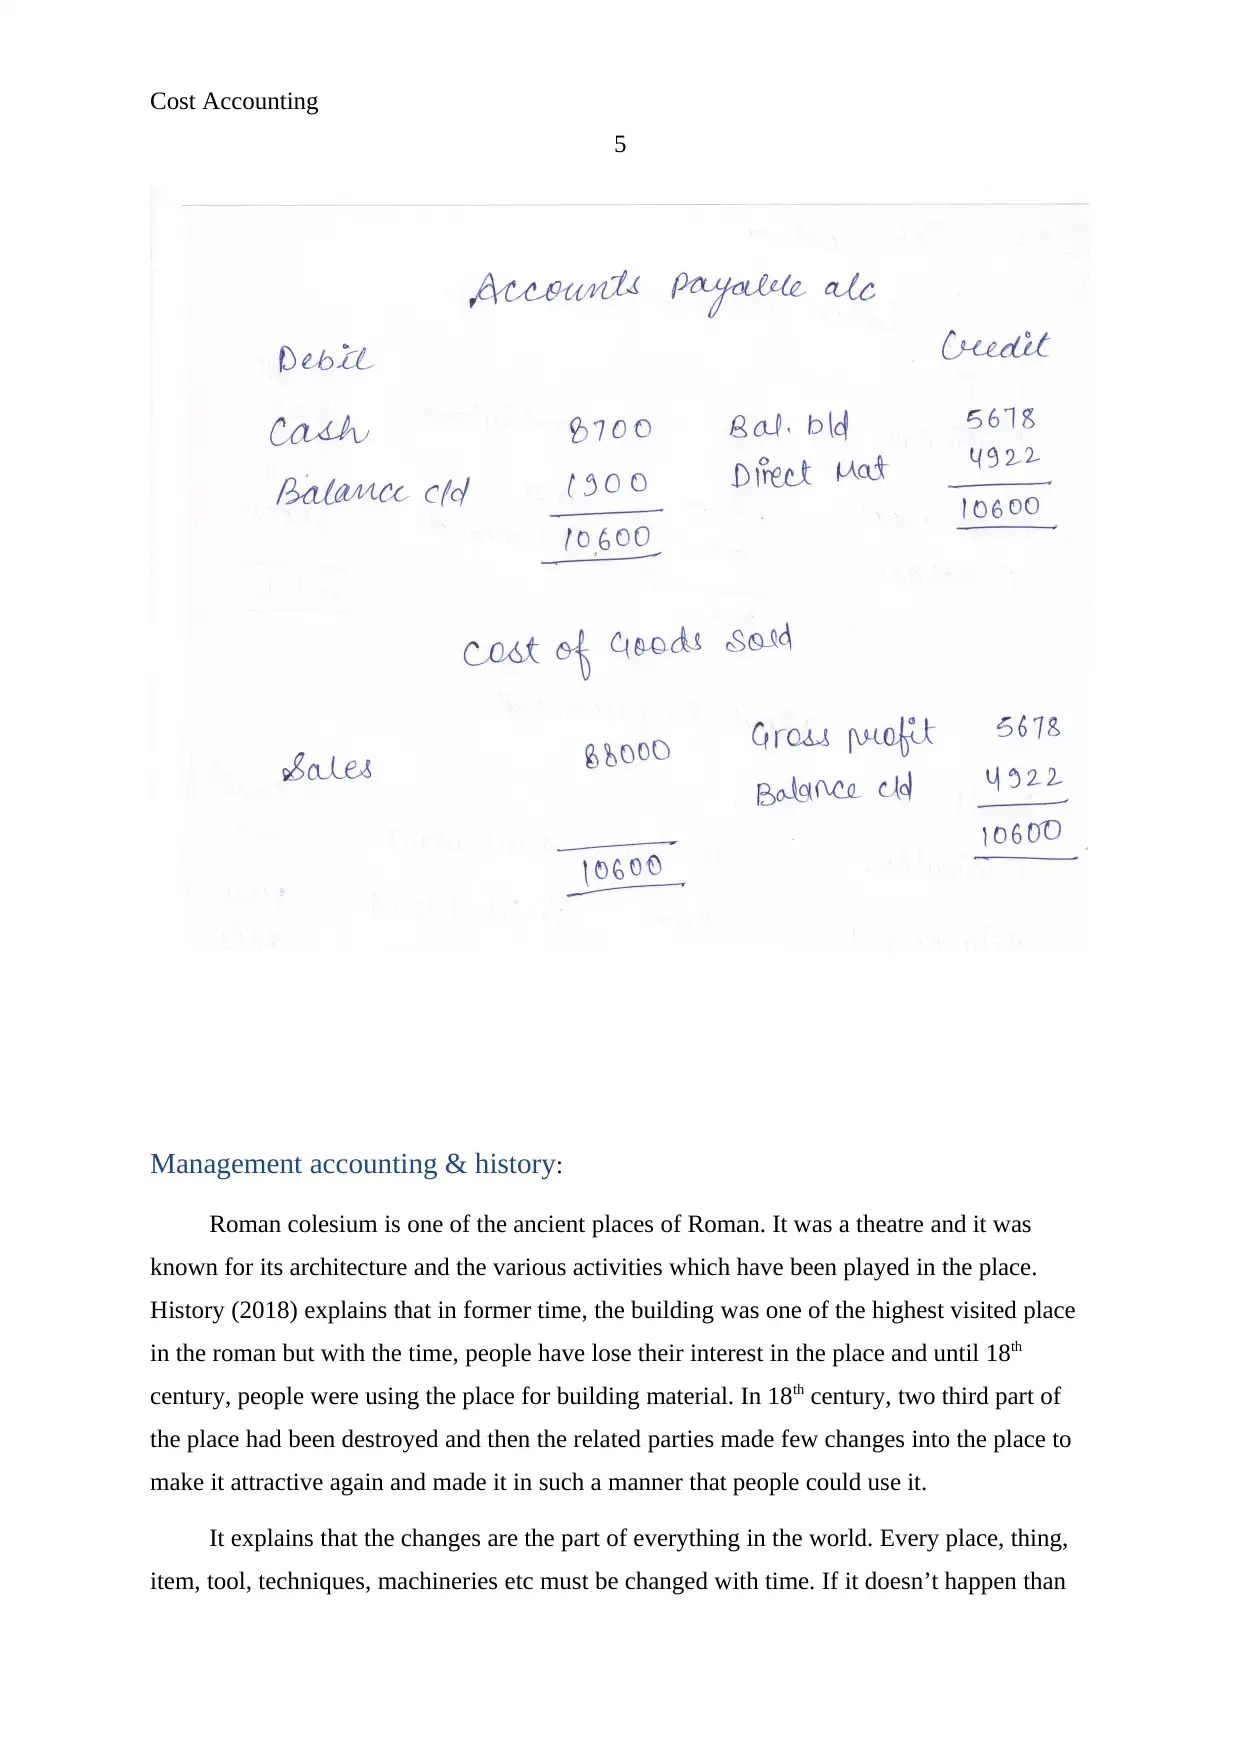 Cost Accounting
5
Accounts payable a/c
Debit Credit
Cash 8700 Bal. b/d 5678
Balance c/d 1900 Direct Mat 4922
10600 10600
Cost of Goods Sold
Sales 88000 Gross profit 5678
Balance c/d 4922
10600 10600
Management accounting & history:
Roman colesium is one of the ancient places of Roman. It was a theatre and it was
known for its architecture and the various activities which have been played in the place.
History (2018) explains that in former time, the building was one of the highest visited place
in the roman but with the time, people have lose their interest in the place and until 18th
century, people were using the place for building material. In 18th century, two third part of
the place had been destroyed and then the related parties made few changes into the place to
make it attractive again and made it in such a manner that people could use it.
It explains that the changes are the part of everything in the world. Every place, thing,
item, tool, techniques, machineries etc must be changed with time. If it doesn’t happen than